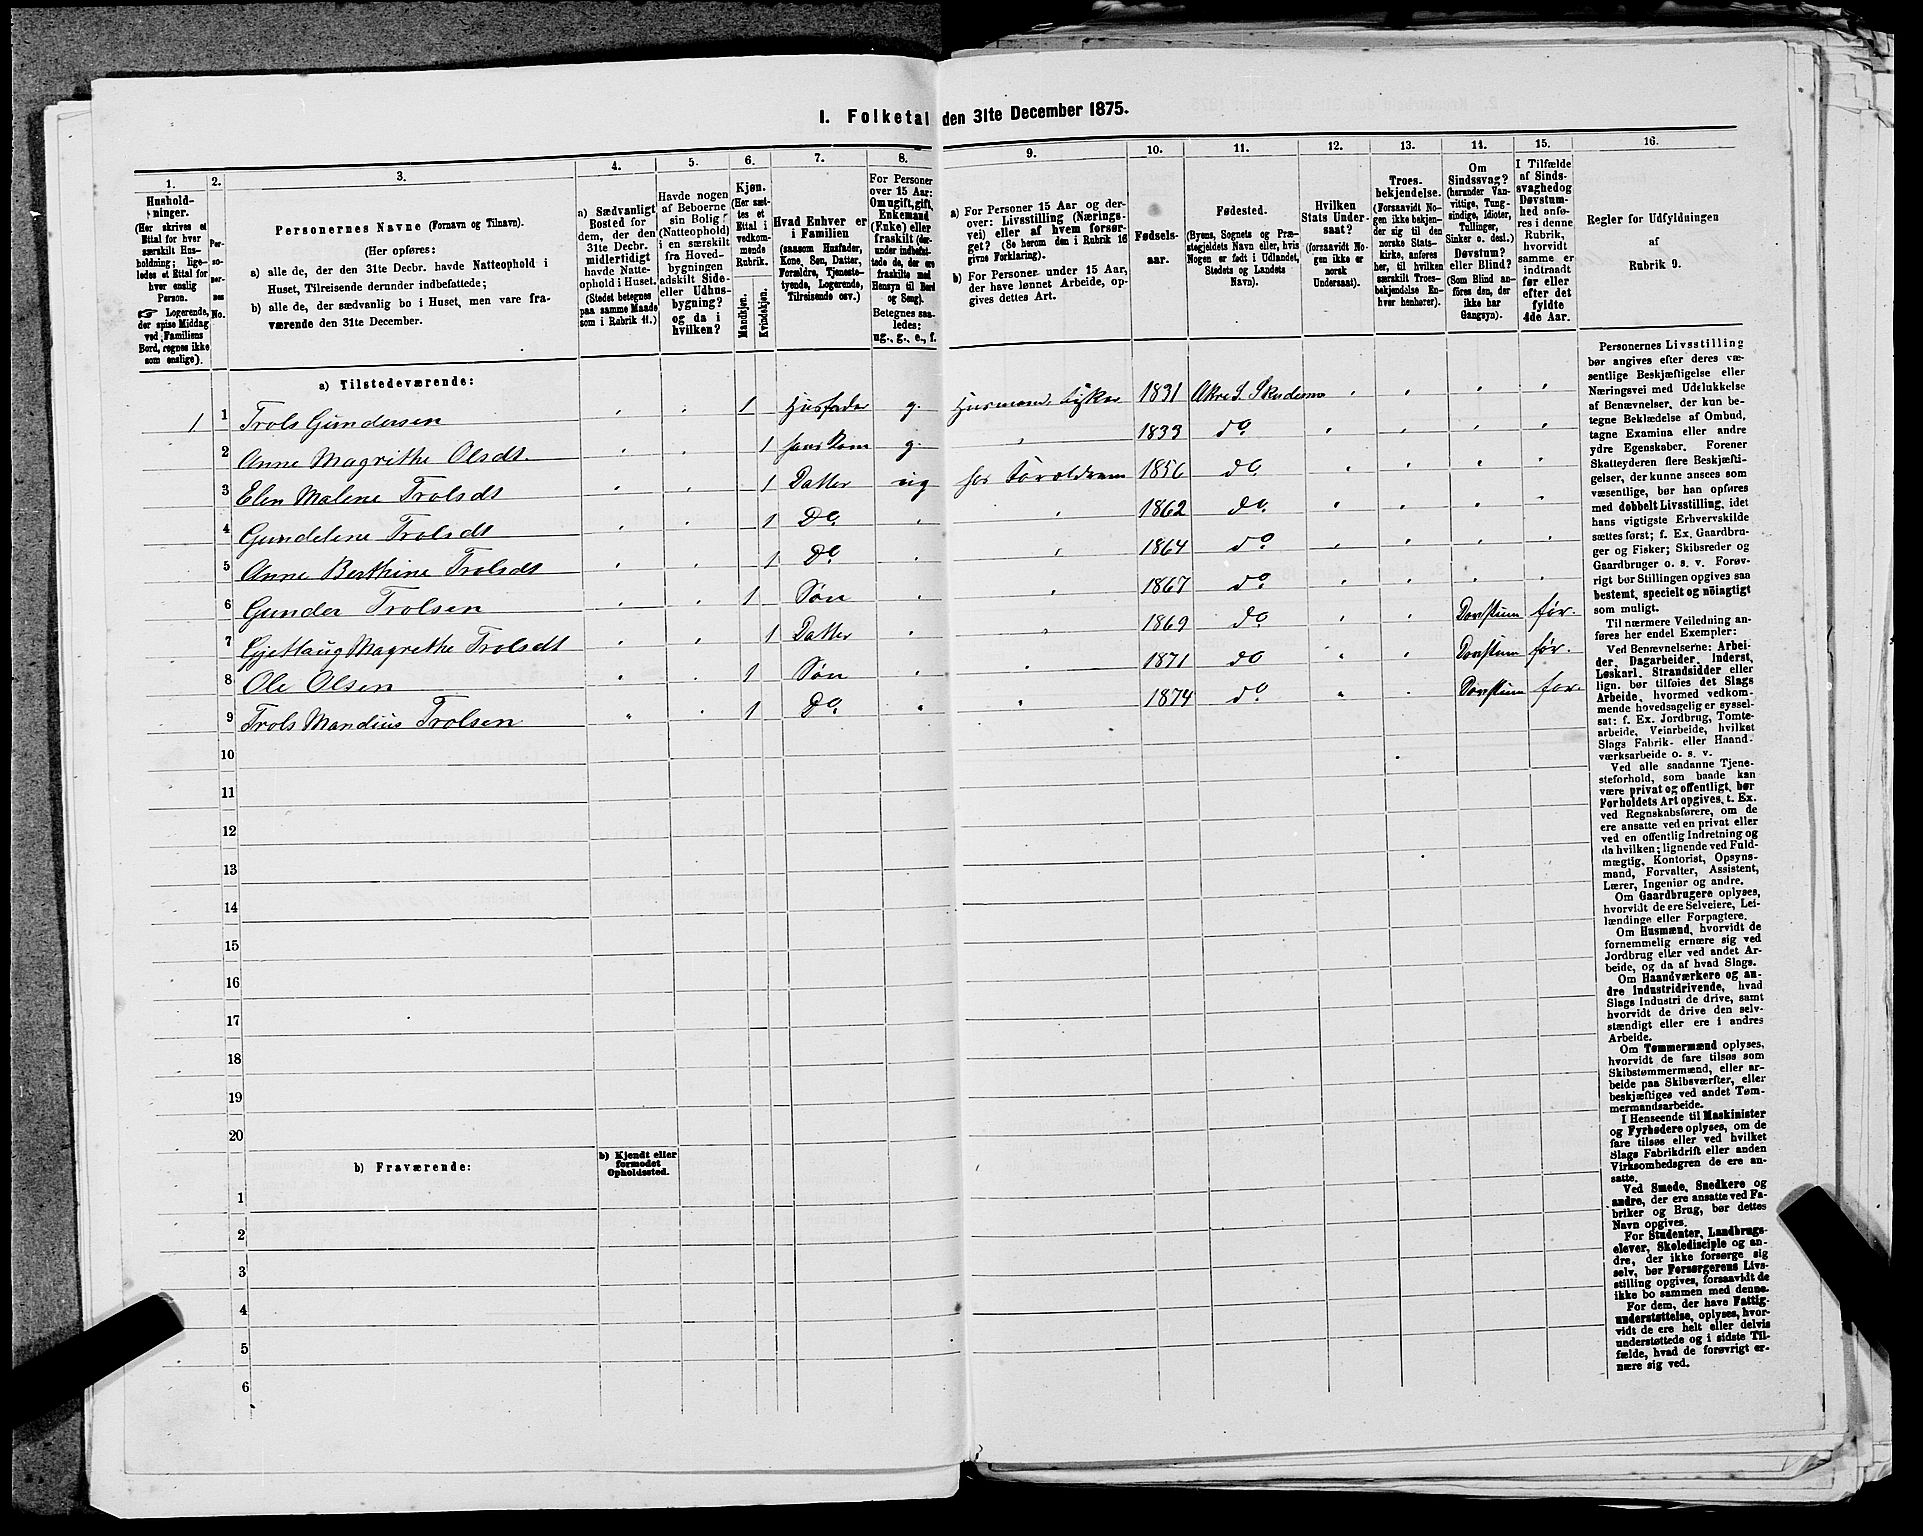 I. Folketal den 31te December 1875.
1.
2.
3.
4.
5.
6.
7.
8.
9.
10.
11.
12.
13.
14.
15.
16.
Hushold-
ninger.
(Her skrives et
Ettal for hver
særskilt Hus-
holdning; lige-
ledes et Ettal for
hver enslig
Person.
☞ Logerende,
der spise Middag
ved Familiens
Bord, regnes ikke
som enslige).
Per-
so-
ner-
nes
No.
Personernes Navne (Fornavn og Tilnavn).
(Her opføres:
a) alle de, der den 31te Decbr. havde Natteophold i
Huset, Tilreisende derunder indbefattede;
b) alle de, der sædvanlig bo i Huset, men vare fra-
værende den 31te December.
a) Sædvanligt
Bosted for
dem, der den
31te Decbr.
midlertidigt
havde Natte-
ophold i Huset.
(Stedet betegnes
paa samme Maade
som i Rubrik 11.)
Havde nogen
af Beboerne
sin Bolig
(Natteophold)
i en særskilt
fra Hoved-
bygningen
adskilt Side-
eller Udhus-
bygning?
og da i
hvilken?
Kjøn.
(Her sæt-
tes et
Ettal i
vedkom-
mende
Rubrik.
Mandkjøn.
Kvindekjøn.
Hvad Enhver er
i Familien
(saasom Husfader,
Kone, Søn, Datter,
Forældre, Tjeneste-
tyende, Logerende,
Tilreisende osv.)
For Personer
over 15 Aar:
Om ugift, gift,
Enkemand
(Enke) eller
fraskilt (der-
under indbefat-
tede de, der ere
fraskilte med
Hensyn til Bord
og Seng).
Betegnes saa-
ledes:
ug., g., e., f.
a) For Personer 15 Aar og der-
over: Livsstilling (Nærings-
vei) eller af hvem forsør-
get? (Se herom den i Rubrik 16
givne Forklaring).
b) For Personer under 15 Aar,
der have lønnet Arbeide, op-
gives dettes Art.
Fødsels-
aar.
Fødested.
(Byens, Sognets og Præ-
stegjeldets Navn eller, hvis
Nogen er født i Udlandet,
Stedets og Landets
Navn).
Hvilken
Stats Under-
saat?
(forsaavidt No-
gen ikke er
norsk
Undersaat).
Troes-
bekjendelse.
(Forsaavidt No-
gen ikke bekjen-
der sig til den
norske Stats-
kirke, anføres
her, til hvilken
særskilt Troes-
bekjendelse En-
hver henhører).
Om
Sindssvag?
(herunder Van-
vittige, Tung-
sindige, Idioter,
Tullinger,
Sinker o. desl.)
Døvstum?
eller Blind?
(Som Blind an-
føres den, der
ikke har
Gangsyn).
I Tilfælde
af Sinds-
svaghed og
Døvstum-
hed anfø-
res i denne
Rubrik,
hvorvidt
samme er
indtraadt
før eller
efter det
fyldte
4de Aar.
Regler for Udfyldningen
af
Rubrik 9.
a) Tilstedeværende:
1 1 Trols Gundersen 1 Husfader g. Husmand, Fisker 1831 Akre S. Skudesnæs
2 Anne Magrithe Olsdt. 1 hans Kone g. 1833 do
3 Elen Malene Trolsdt 1 Datter ug for Forældrene 1856 do
4 Gundelene Trolsdt 1 Do. 1862 do.
5 Anne Berthine Trolsdt 1 Do 1864 do
6 Gunder Trolsen 1 Søn 1867 do.
7 Gjettaug Magrethe Trolsdt 1 Datter 1869 do Døvstum før.
8 Ole Olsen 1 Søn 1871 do Døvstum før.
9 Trols Mandius Trolsen 1 Do. 1874 do. Døvstum før.
10
11
12
13
14
15
16
17
18
19
20
b) Fraværende:
b) Kjendt eller
formodet
Opholdssted.
1
2
3
4
5
6
Personernes Livsstilling
bør angives efter deres væ-
sentlige Beskjæftigelse eller
Næringsvei med Udelukkelse
af Benævnelser, der kun be-
tegne Beklædelse af Ombud,
tagne Examina eller andre
ydre Egenskaber. Forener
Skatteyderen flere Beskjæfti-
gelser, der kunne ansees som
væsentlige, bør han opføres
med dobbelt Livsstilling, idet
hans vigtigste Erhvervskilde
sættes først; f. Ex. Gaardbru-
ger og Fisker; Skibsreder og
Gaardbruger o. s. v. Forøv-
rigt bør Stillingen opgives saa
bestemt, specielt og nöiagtigt
som muligt.
Til nærmere Veiledning an-
føres her endel Exempler:
Ved Benævnelserne: Arbei-
der, Dagarbeider, Inderst,
Løskarl, Strandsidder eller
lign. bør tilføies det Slags
Arbeide, hvormed vedkom-
mende hovedsagelig er syssel-
sat: f. Ex. Jordbrug, Tomte-
arbeide, Veiarbeide, hvilket
Slags Fabrik- eller Haand-
værksarbeide o. s. v.
Ved alle saadanne Tjene-
steforhold, som baade kan
være privat og offentligt, bør
Forholdets Art opgives, t. Ex.
ved Regnskabsførere, om de
ere ansatte ved en privat eller
ved en offentlig Indretning og
da hvilken; lignende ved Fuld-
mægtig, Kontorist, Opsyns-
mand, Forvalter, Assistent,
Lærer, Ingeniør og andre.
Om Gaardbrugere oplyses,
hvorvidt de ere Selveiere, Lei-
lændinge eller Forpagtere.
Om Husmænd, hvorvidt de
fornemmelig ernære sig ved
Jordbrug eller ved andet Ar-
beide, og da af hvad Slags.
Om Haandværkere og an-
dre Industridrivende, hvad
Slags Industri de drive, samt
hvorvidt de drive den selv-
stændigt eller ere i andres
Arbeide.
Om Tømmermænd oplyses,
hvorvidt de fare tilsøs som
Skibstømmermænd, eller ar-
beide paa Skibsværfter, eller
beskjæftiges ved andet Tøm-
mermandsarbeide.
I Henseende til Maskinister
og Fyrbødere oplyses, om de
fare tilsøs eller ved hvilket
Slags Fabrikdrift eller anden
Virksomhedsgren de ere an-
satte.
Ved Smede, Snedkere og
andre, der ere ansatte ved Fa-
briker og Brug, bør dettes
Navn opgives.
For Studenter, Landbrugs-
elever, Skoledisciple og an-
dre, der ikke forsørge sig
selv, bør Forsørgerens Livs-
stilling opgives, forsaavidt de
ikke bo sammen med denne.
For dem, der have Fattig-
understøttelse, oplyses, hvor-
vidt de ere helt eller delvis
understøttede og i sidste Til-
fælde, hvad de forøvrigt er-
nære sig ved.